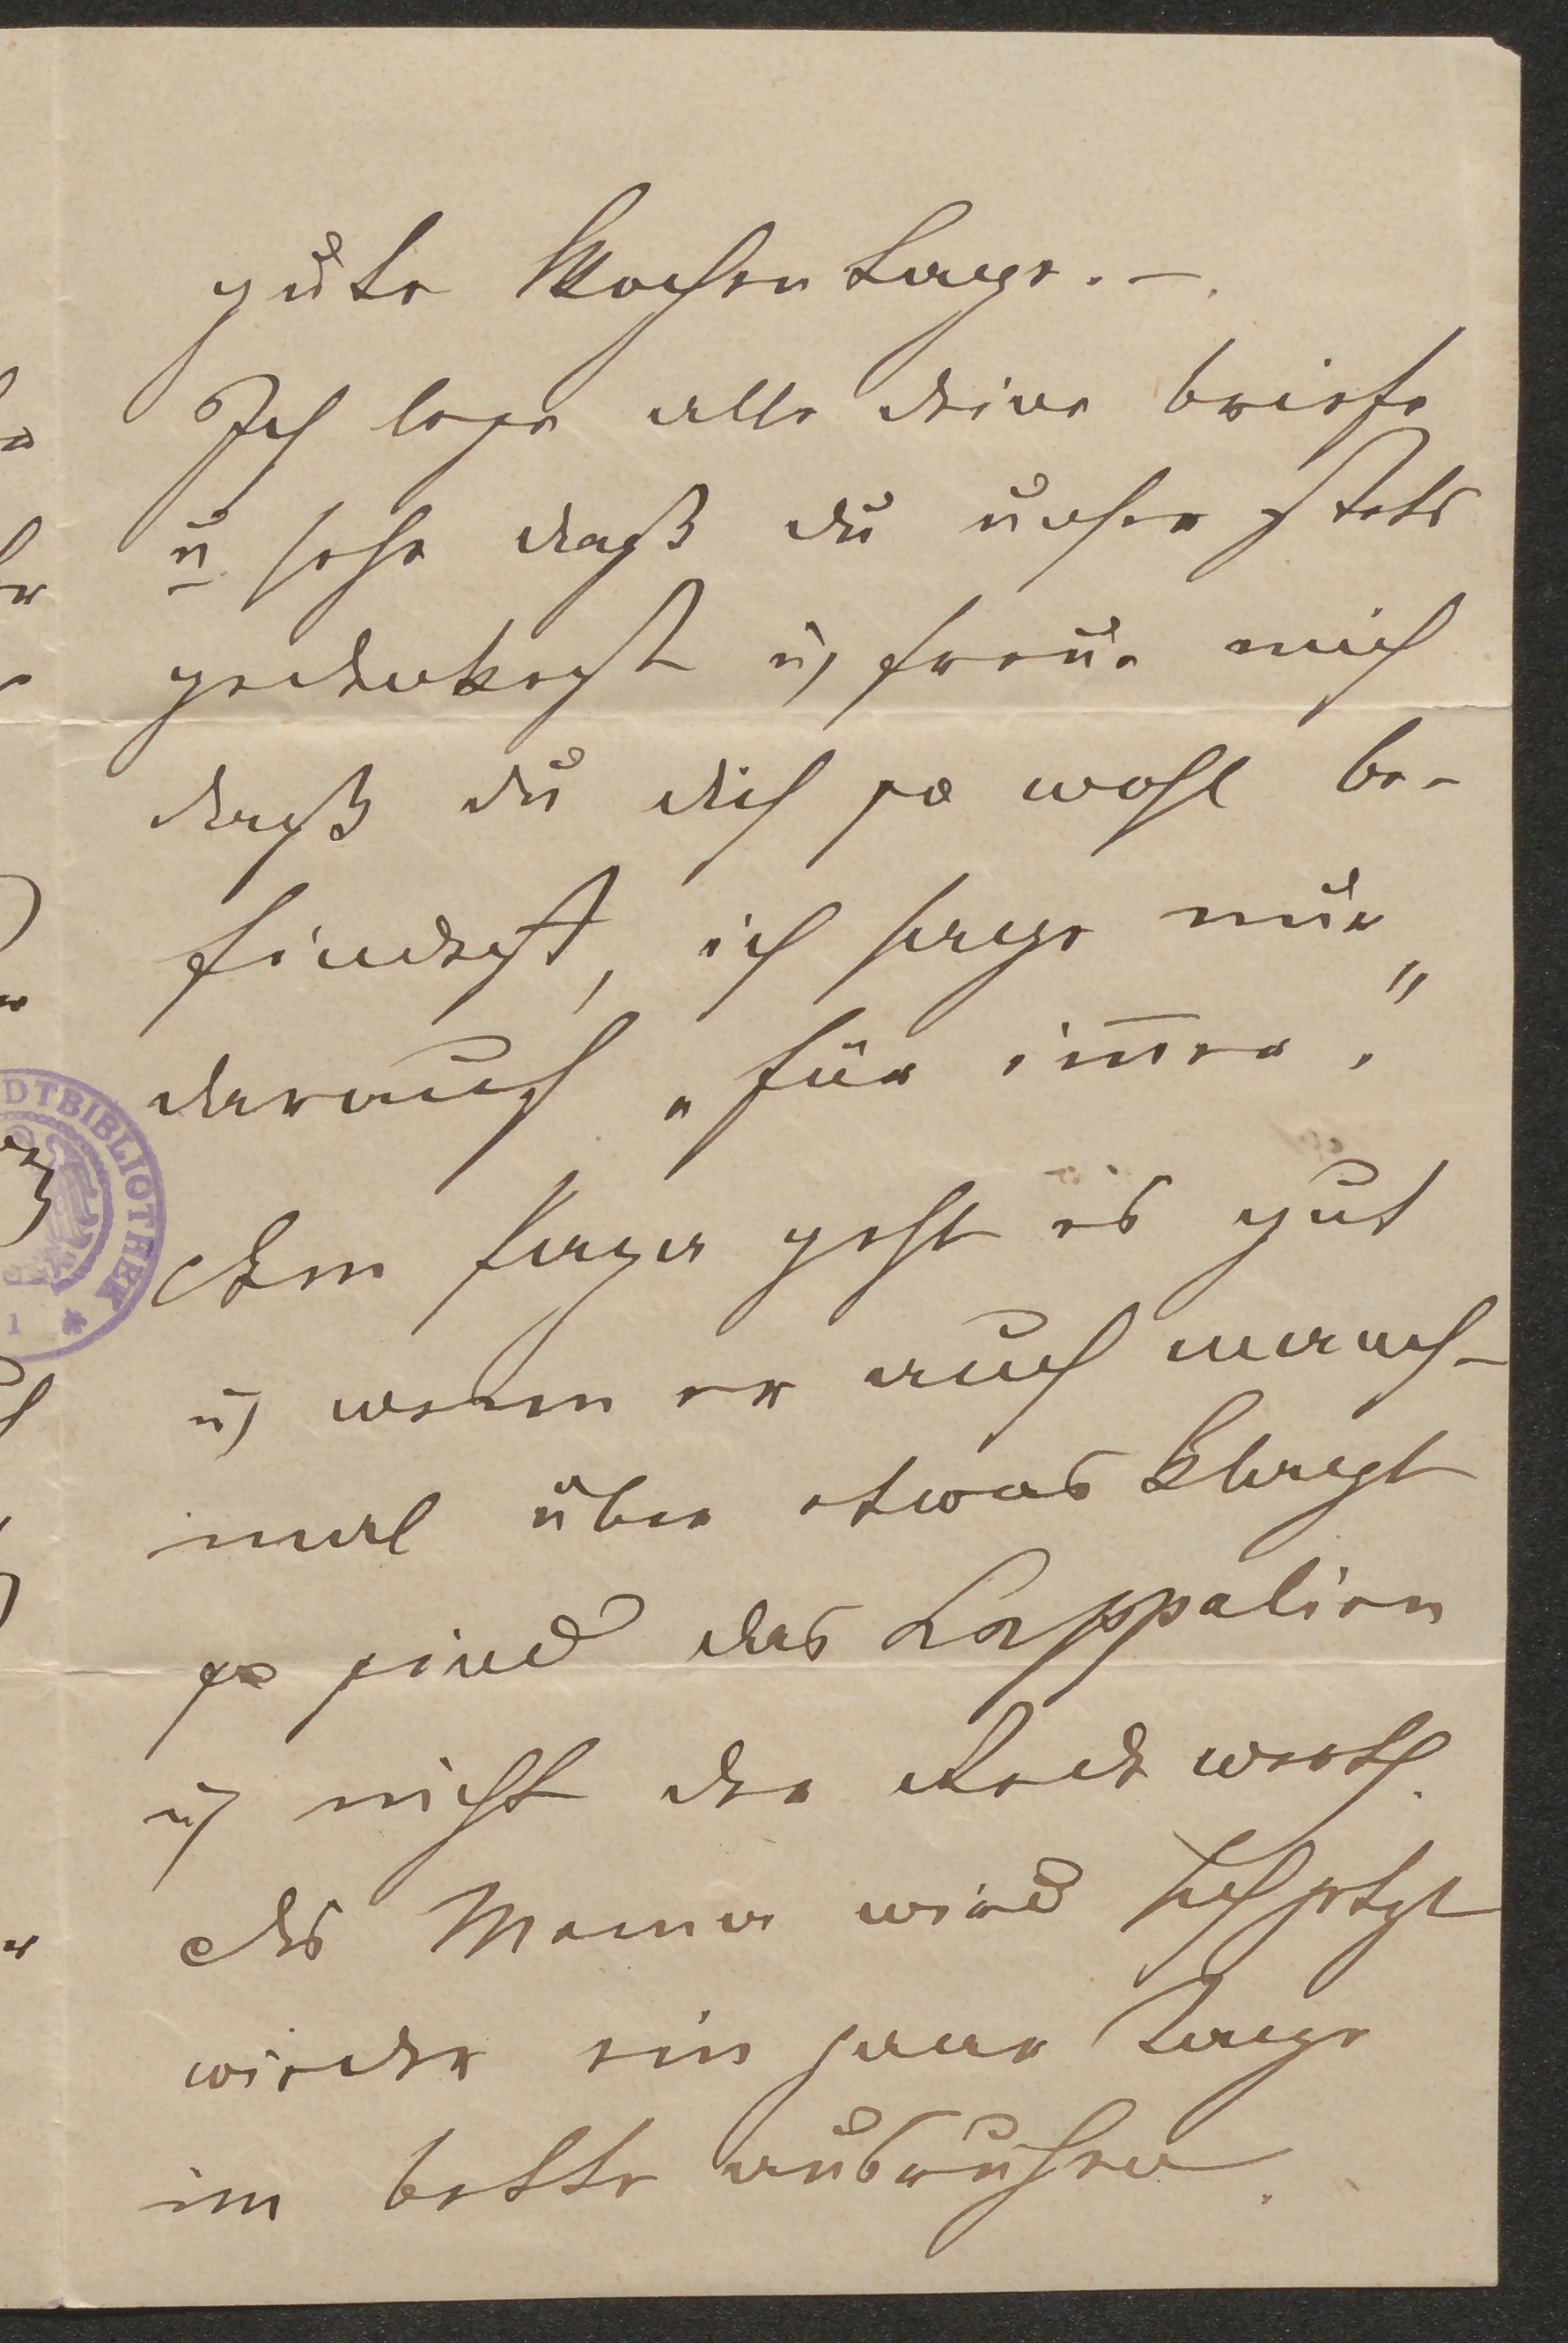 gute Wochentage. –
Ich lese alle deine briefe
u sehe daß du unser stets
gedenkest u freue mich
daß du dich so wohl be-
findest, ich sage nur
darauf „für im̅er."
Dem Papa geht es gut
u wenn er auch manch-
mal über etwas klagt
so sind das Bappalien
u nicht der Rede werth.
Die Mama wird sich jetzt
wieder ein paar Tage
im bette ausruhen.
DTBIBLIOTHEK